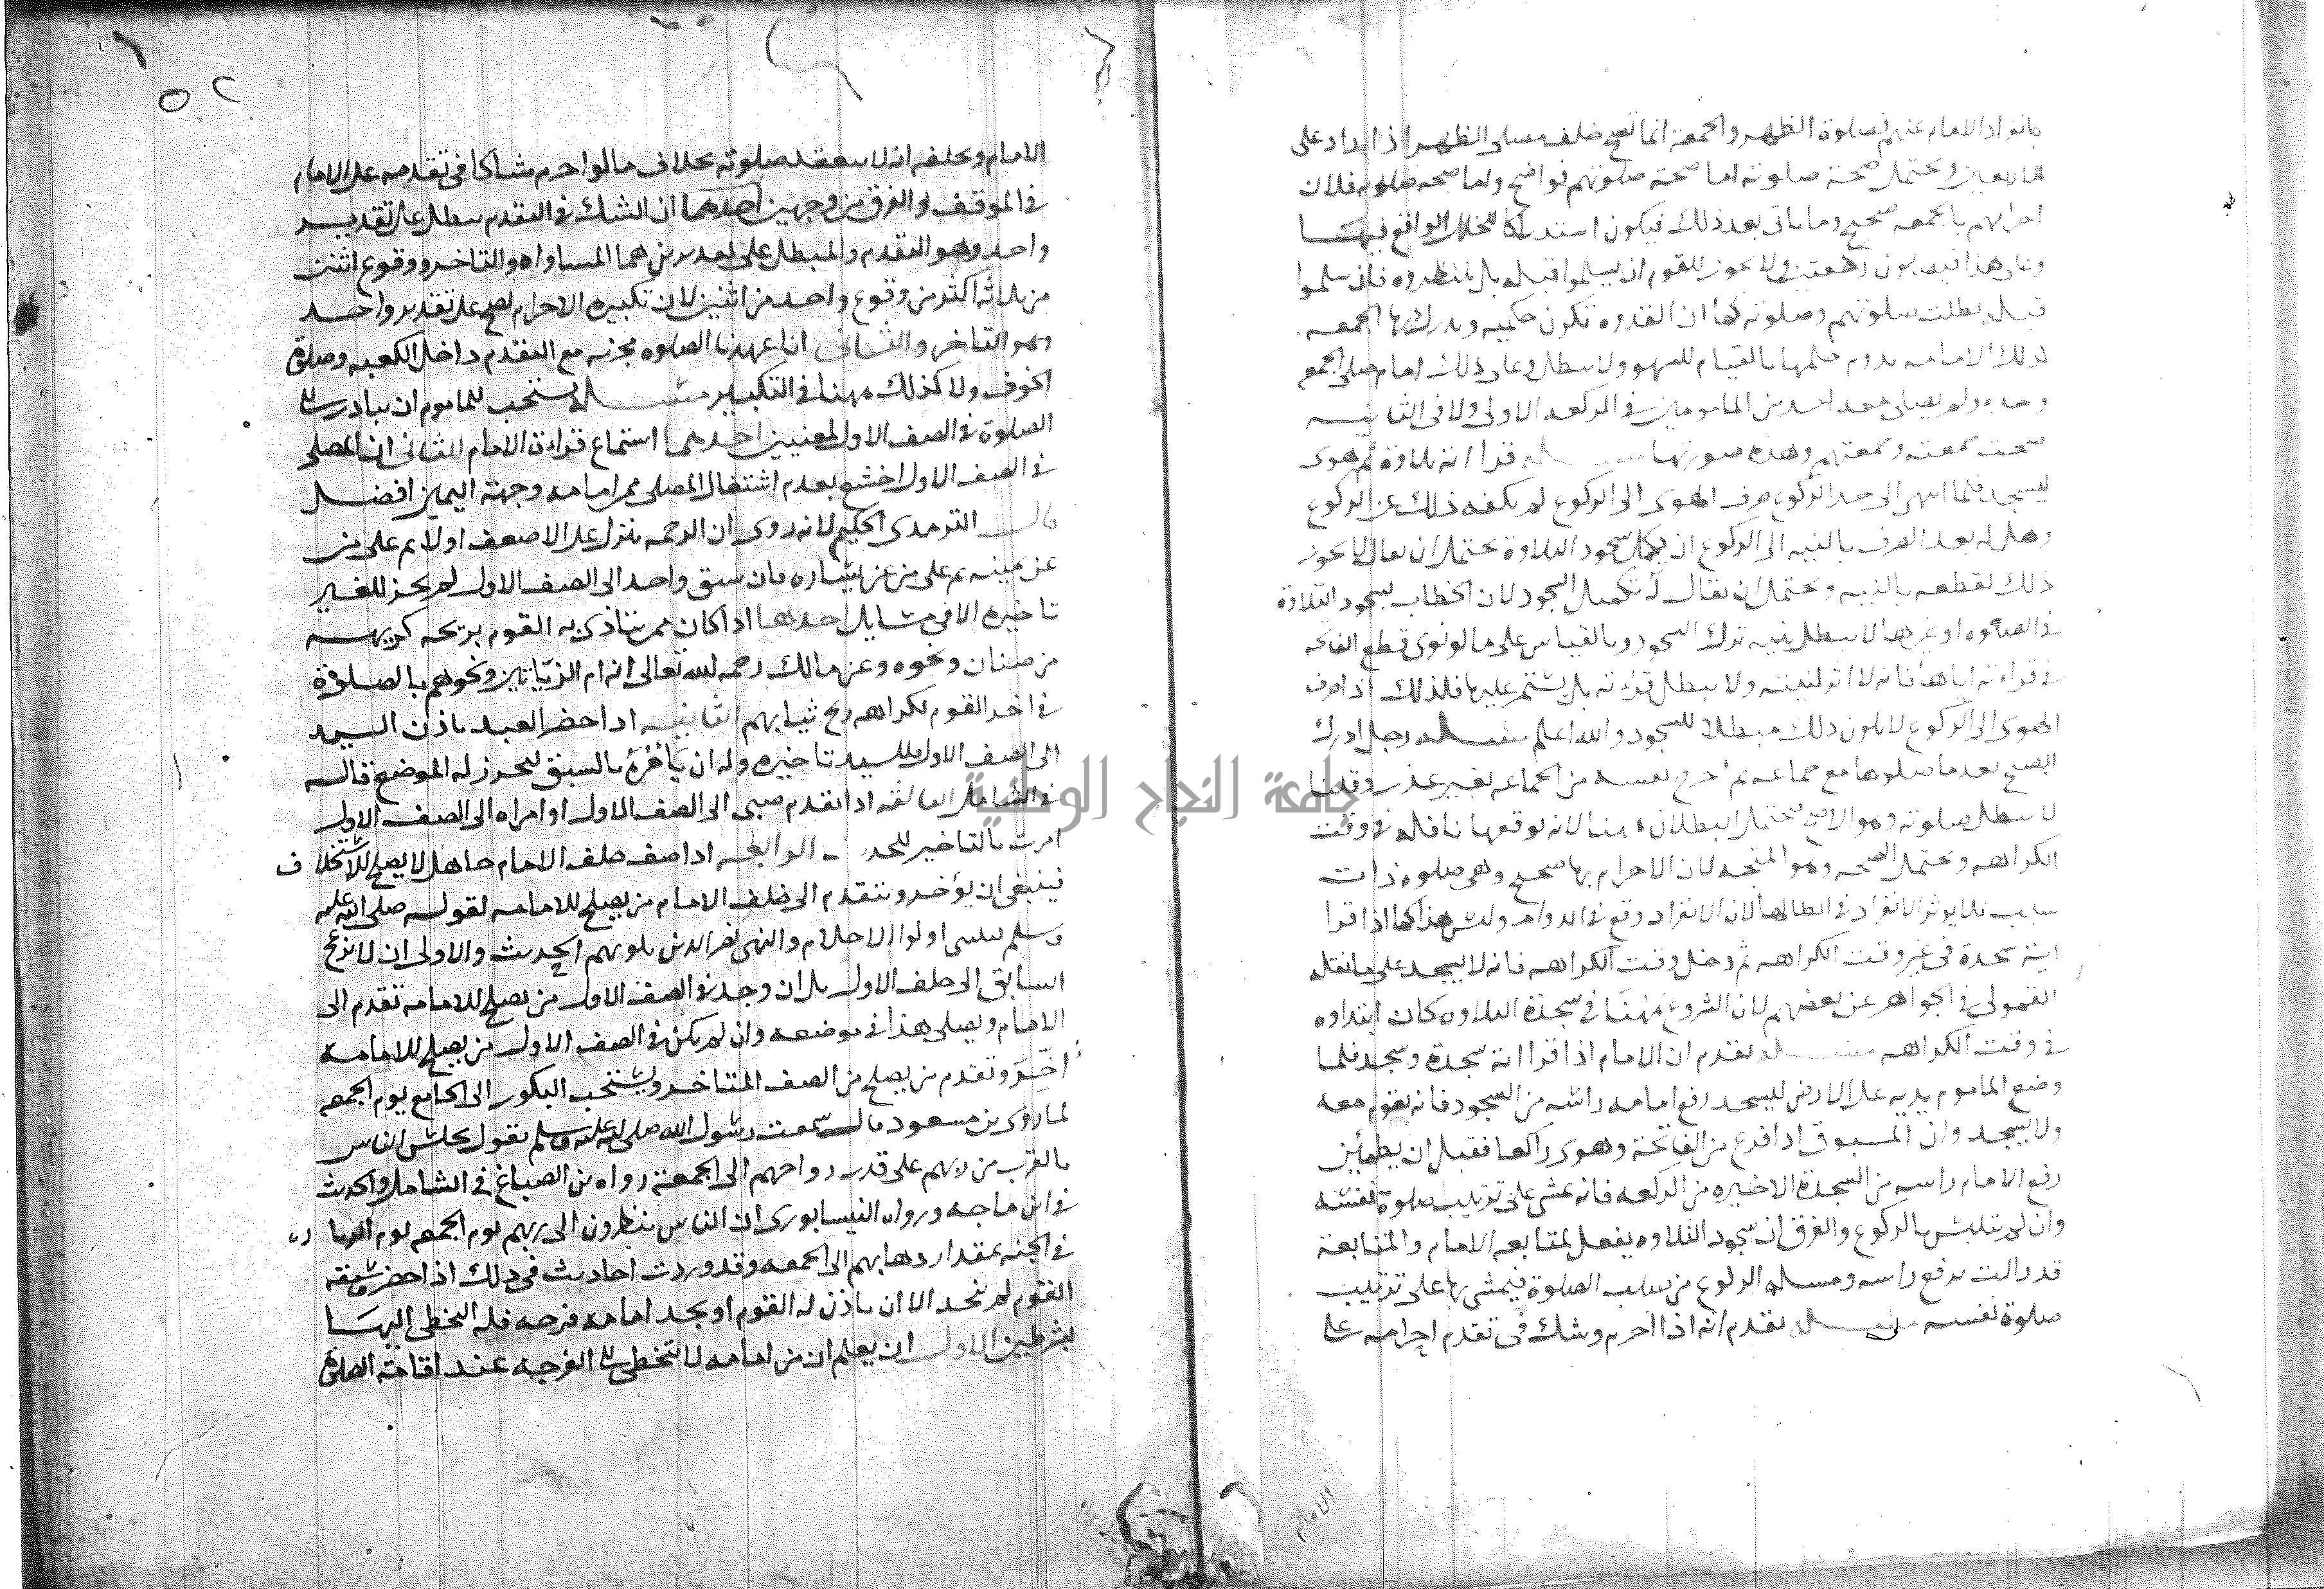 بانفراد الامام عنهم فصلوة الظهر والجمعة انما تصح خلف مصلى الظهر اذا زاد على
الاربعين ويحتمل صحة صلوته اما صحة صلوتهم فواضح واما صحه صلوته فلان
احرامهم بالجمعه صحيح وما ياتى بعد ذلك فيكون استدراكا للخلل الواقع فيها
وعلى هذا فيصلون ركعتين ولا يجوز للقوم ان يسلموا قبله بل ينتظروه فان سلموا
قبله بطلت صلوتهم وصلوته كما ان القدوه تكون حكميه ويدرك بها الجمعه
كذلك الامامه يدوم حكمها بالقيام للسهو ولا يبطل وعلى ذلك امام صلى الجمع
وحده ولم يصلى معه احد من المامومين فى الركعه الاولى ولا فى الثانيه
صحت جمعته وجمعتهم وهذه صورتها مسله قرا ايه تلاوة ثم هوى
ليسجد فلما انتهى الى حد الركوع صرف الهوى الى الركوع لم يكفه ذلك عن الركوع
وهل له بعد الصرف بالنيه الى الركوع ان يكمل سجود التلاوة يحتمل ان يقال لا يجوز
ذلك لقطعه بالنيه ويحتمل ان يقال له تكميل السجود لان الخطاب لسجود التلاوة
فى الصلوه او غيرها لا يبطل بنيه ترك السجود وبالقياس على ما لو نوى قطع الفاتحه
فى قراءته اياها فانه لا اثر لنيته ولا يبطل قراته بل يستمر عليها فلذلك اذا صرف
الهوى الى الركوع لا يكون ذلك مبطلا للسجود والله اعلم مسله رجل ادرك
الصبح بعد ما صلوها مع جماعه ثم اخرج نفسه من الجماعه بغير عذر وقلنا
لا يبطل صلوته وهو الاصح يحتمل البطلان هنا لانه يوقعها نافله فى وقت
الكراهه ويحتمل الصحه وهو المتجه لان الاحرام بها صحيح وهى صلوه ذات
سبب فلا يوثر الانفراد فى ابطالها لان الانفراد وقع فى الدوام وليس هذا كما اذا قرا
اية سجدة فى غير وقت الكراهه ثم دخل وقت الكراهه فانه لا يسجد على ما نقله
القمولى فى الجواهر عن بعضهم لان الشروع هنا فى سجدة التلاوه كان ابتداوه
فى وقت الكراهه مسله تقدم ان الامام اذا قرا اية سجدة وسجد فلما
وضع الماموم يديه على الارض ليسجد رفع امامه راسه من السجود فانه يقوم معه
ولا يسجد وان المسبوق اذا فرغ من الفاتحة وهوى راكعا فقبل ان يطمئن
رفع الامام راسه من السجدة الاخيره من الركعه فانه يمشى على ترتيب صلوة نفسه
وان لم يتلبس بالركوع والفرق ان سجود التلاوه يفعل لمتابعه الامام والمتابعة
قد زالت برفع راسه ومسله الركوع من صلب الصلوة فيمشى بها على ترتيب
صلوة نفسه مسله تقدم انه اذا احرم وشك فى تقدم احرامه على
الامام
الامام وخلفه انه لا ينعقد صلوته بخلاف ما لو احرم شاكا فى تقدمه على الامام
فى الموقف والفرق من وجهين احدهما ان الشك فى التقدم يبطل على تقدير
واحد وهو التقدم والمبطل على تقديرين هما المساواه والتاخر ووقوع اثنين
من ثلاثه اكثر من وقوع واحد من اثنين لان تكبيره الاحرام تصح على تقدير واحد
وهو التاخر والثانى انا عهدنا الصلوه مجزئه مع التقدم داخل الكعبه وصلوة
الخوف ولا كذلك ههنا فى التكبير مسله يستحب للماموم ان يبادر الى
الصلوة فى الصف الاول لمعنيين احدهما استماع قراءة الامام الثانى ان المصلى
فى الصف الاول اخشع بعدم اشتغال المصلى ممر امامه وجهة اليمين افضل
قال الترمدى الحكيم لانه روى ان الرحمه تنزل على الاصعف اولا ثم على من
عن يمينه ثم على من عن يساره فان سبق واحد الى الصف الاول لم يجز للغير
تاخيره الا فى مسايل احدها اذا كان ممن يتاذى به القوم بريحه كريهه
من صنان ونحوه وعن مالك رحمه الله تعالى انه ام الزياتين ونحوهم بالصلوة
فى اخر القوم لكراهه ريح ثيابهم الثانيه اذا حضر العبد باذن السيد
الى الصف الاول فللسيد تاخيره وله ان يامره بالسبق ليحرز له الموضع قاله
فى الشامل الثالثه اذا تقدم صبى الى الصف الاول او امراه الى الصف الاول
امرت بالتاخير للحد الرابعه اذا صف خلف الامام جاهل لا يصلح للاستخلاف
فينبغى ان يؤخر ويتقدم الى خلف الامام من يصلح للامامه لقوله صلى الله عليه
وسلم ليلينى اولوا الاحلام والنهى ثم الدين يلونهم الحديث والاولى ان لا يزعج
السابق الى خلف الاول بل ان وجد فى الصف الاول من يصلح للامامه تقدم الى
الامام ويصلى هذا فى موضعه وان لم يكن فى الصف الاول من يصلح للامامة
اخر وتقدم من يصلح من الصف المتاخر ويستحب البكور الى الجامع يوم الجمعه
لما روى بن مسعود قال سمعت رسول الله صلى الله عليه وسلم يقول يجلس الناس
بالقرب من ربهم على قدر رواحهم الى الجمعة رواه بن الصباغ فى الشامل والحديث
فى ابن ماجه ورواه النيسابورى ان الناس ينظرون الى ربهم يوم الجمعه يوم الزيارة
فى الجنه بمقدار دهابهم الى الجمعه وقد وردت احاديث فى ذلك اذا حضر
القوم لم يتخط الا ان ياذن له القوم او يجد امامه فرجه فله التخطى اليها
بشرطين الاول ان يعلم ان من امامه لا يتخطى الى الفرجه عند اقامة الصلوة
جامعة النجاح الوطنية